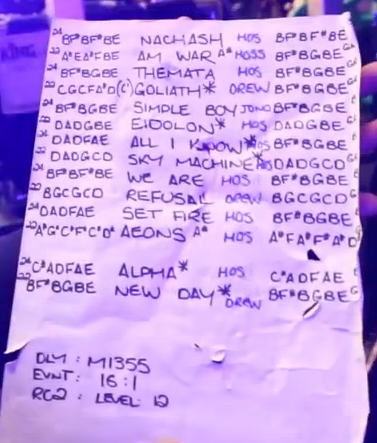 BF#BF#BE NACHASH HOS BF#BF#BE
A#EA#FBE AM WAR A# HOSS
BF#BGBE THEMATA HOS BF#BGBE
CGCFA#D (C) GOLIATH* DREW BF#BGBE
BF#BGBE SIMPLE BOY JONO BF#BGBE
DADGBE EIDOLON* HOS DADGBE
DADFAE ALL I KNOW* HOS BF#BGBE
DADGCD SKY MACHINE* HOS DADGCD
BF#BF#BE WE ARE HOS BF#BGBE
BGCGCD REFUSAL DREW BGCGCD
DADFAE SET FIRE HOS BF#BGBE
AEONS A# HOS
C#ADFAE ALPHA* HOS C#ADFAE
BF#BGBE NEW DAY* DREW BF#BGBE
DLY : M1355
EVNT : 16:1
RC2 : LEVEL 12